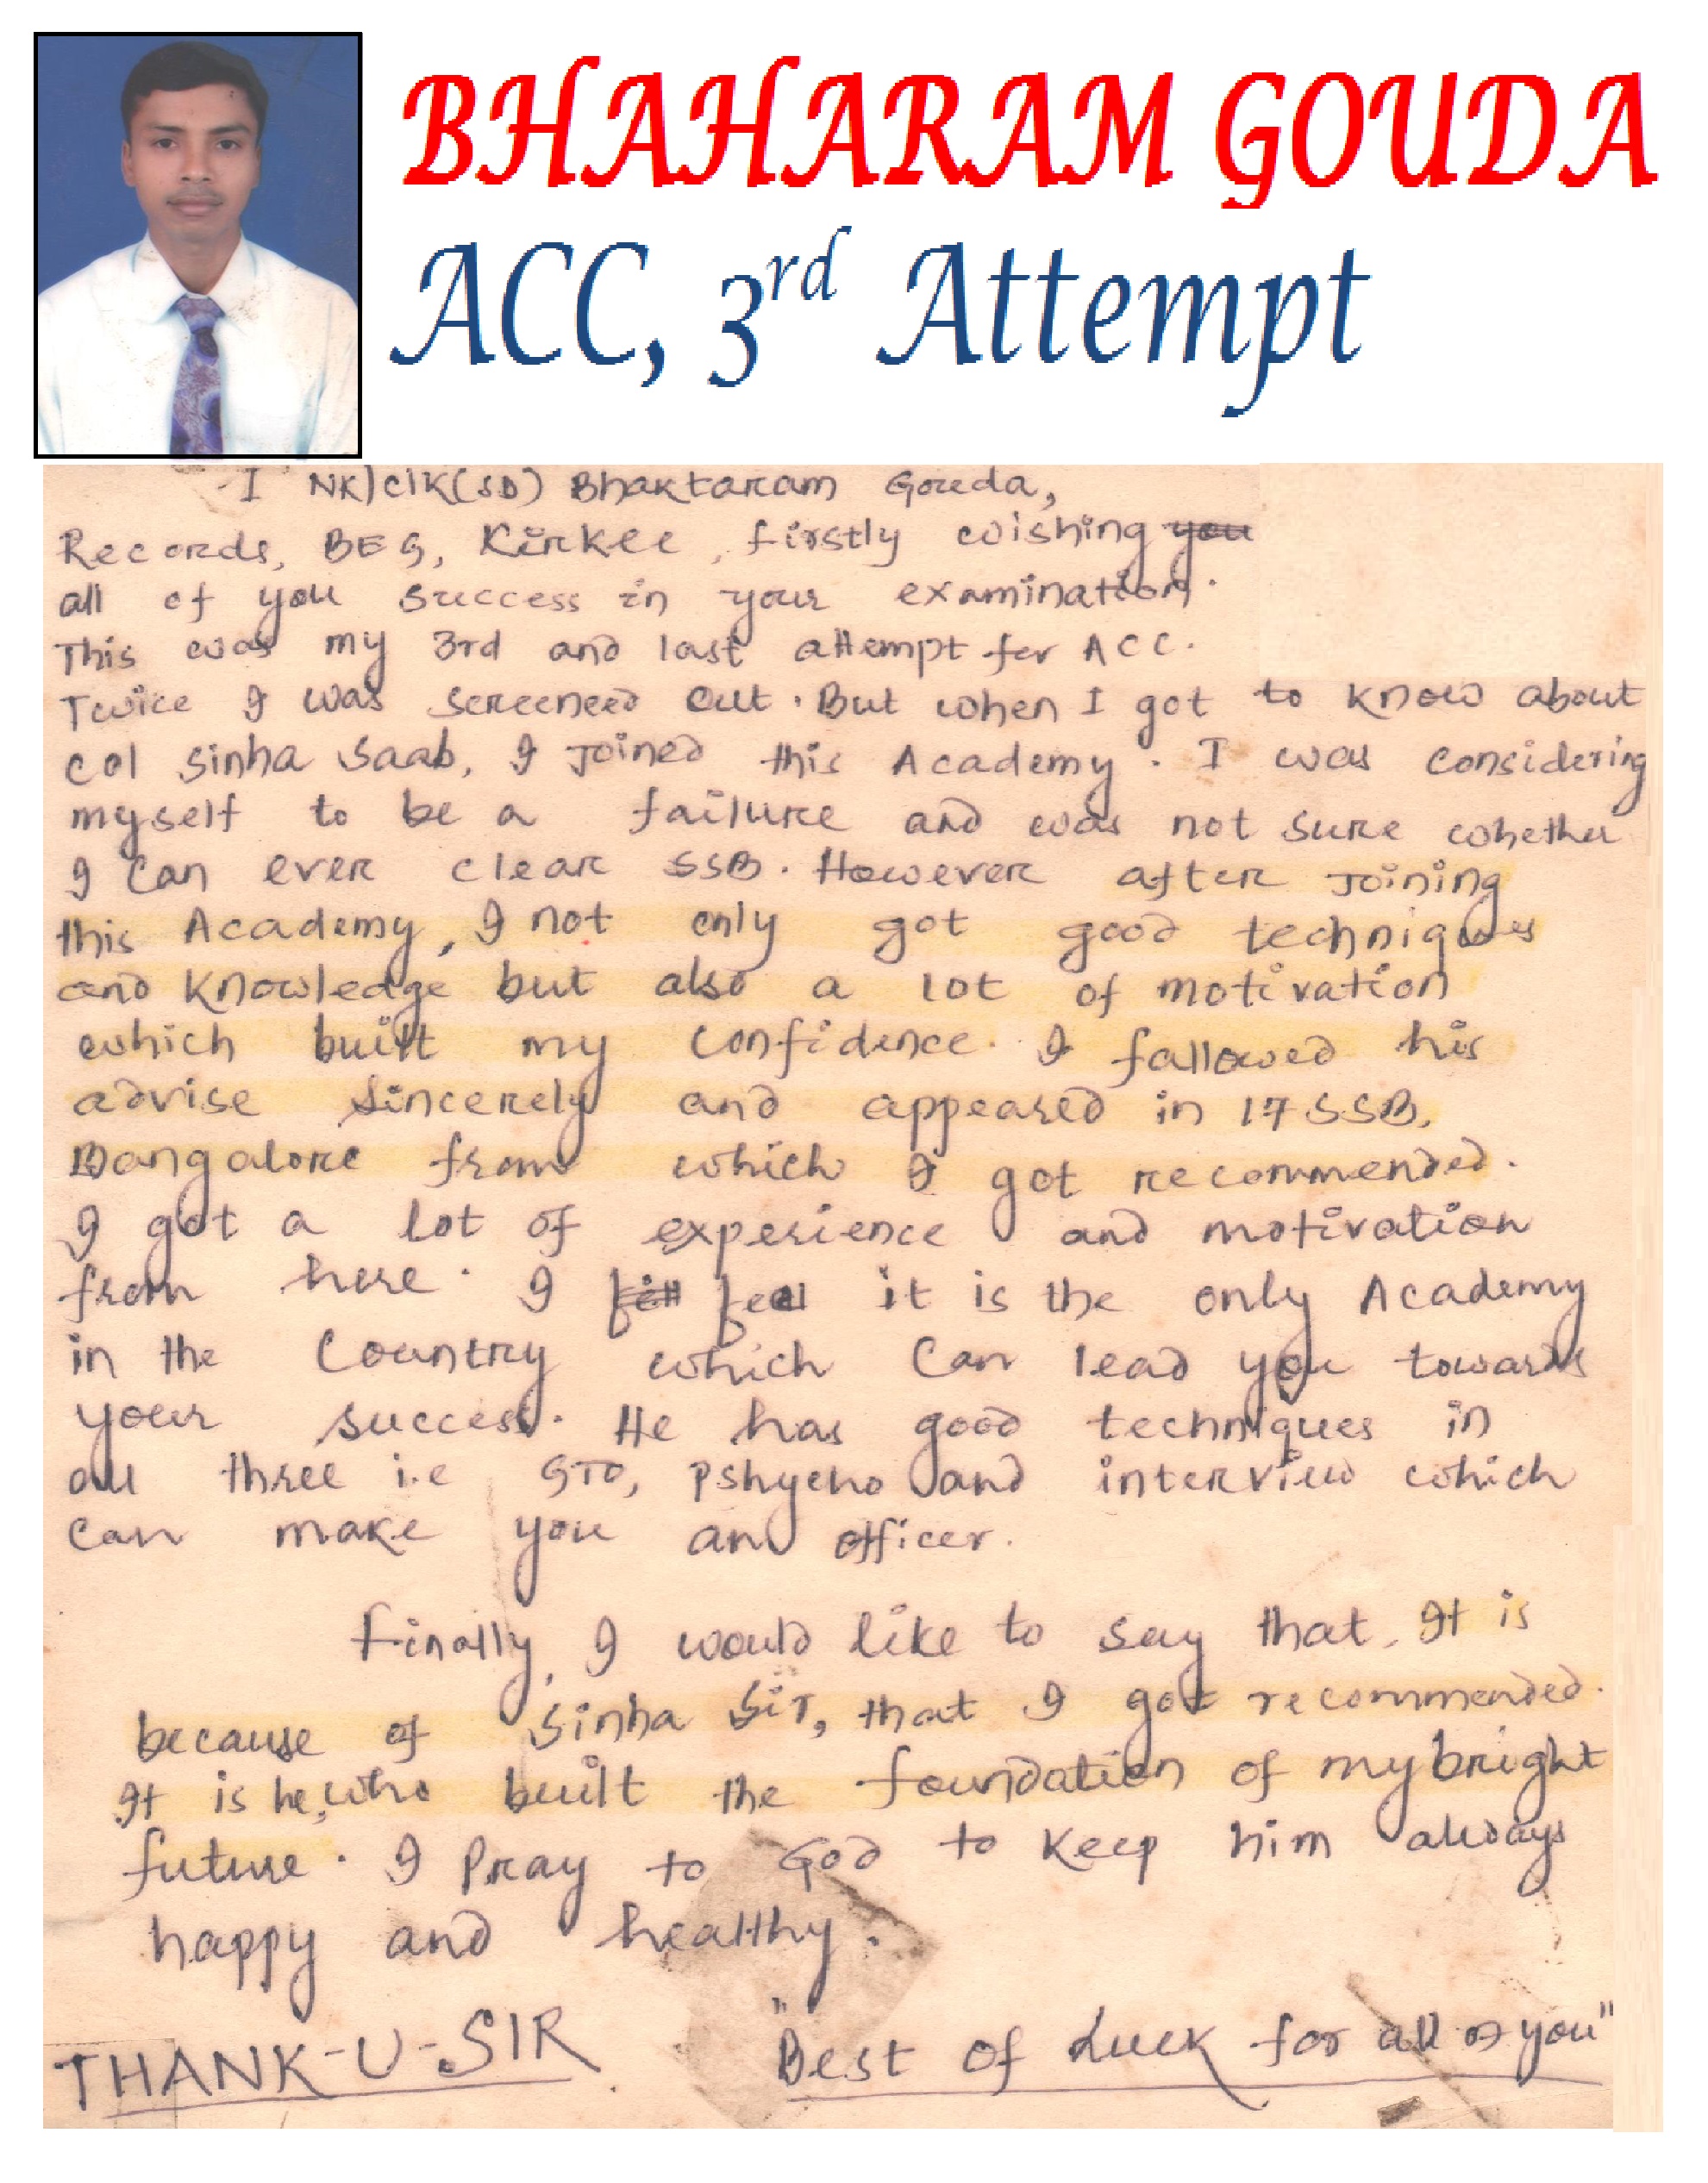 BHAHARAM GOUDA
ACC, 3rd Attempt
I NK/clk(SD) Bhaktaram Gouda,
Records, BEG, Kirkee, firstly wishing you
all of you success in your examination.
This was my 3rd and last attempt for ACC.
Twice I was screeneed out. But when I got to know about
Col Sinha Saab, I Joined this Academy. I was considering
myself to be a failure and was not sure whether
I can ever clear SSB. However after Joining
this Academy, I not only got good techniques
and knowledge but also a lot of motivation
which built my confidence. I fallowed his
advise sincerely and appeared in 17 SSB,
Bangalore from which I got recommended.
I got a lot of experience and motivation
from here. I fell feel it is the only Academy
in the Country which can lead you towards
your success. He has good techniques in
all three i.e GTO, Pshycho and interview which
can make you an officer.
Finally, I would like to say that, It is
because of Sinha Sir, that I got recommended.
It is he, who built the foundation of my bright
future. I Pray to God to keep him always
happy and healthy.
THANK-U-SIR. "Best of Luck for all of you"